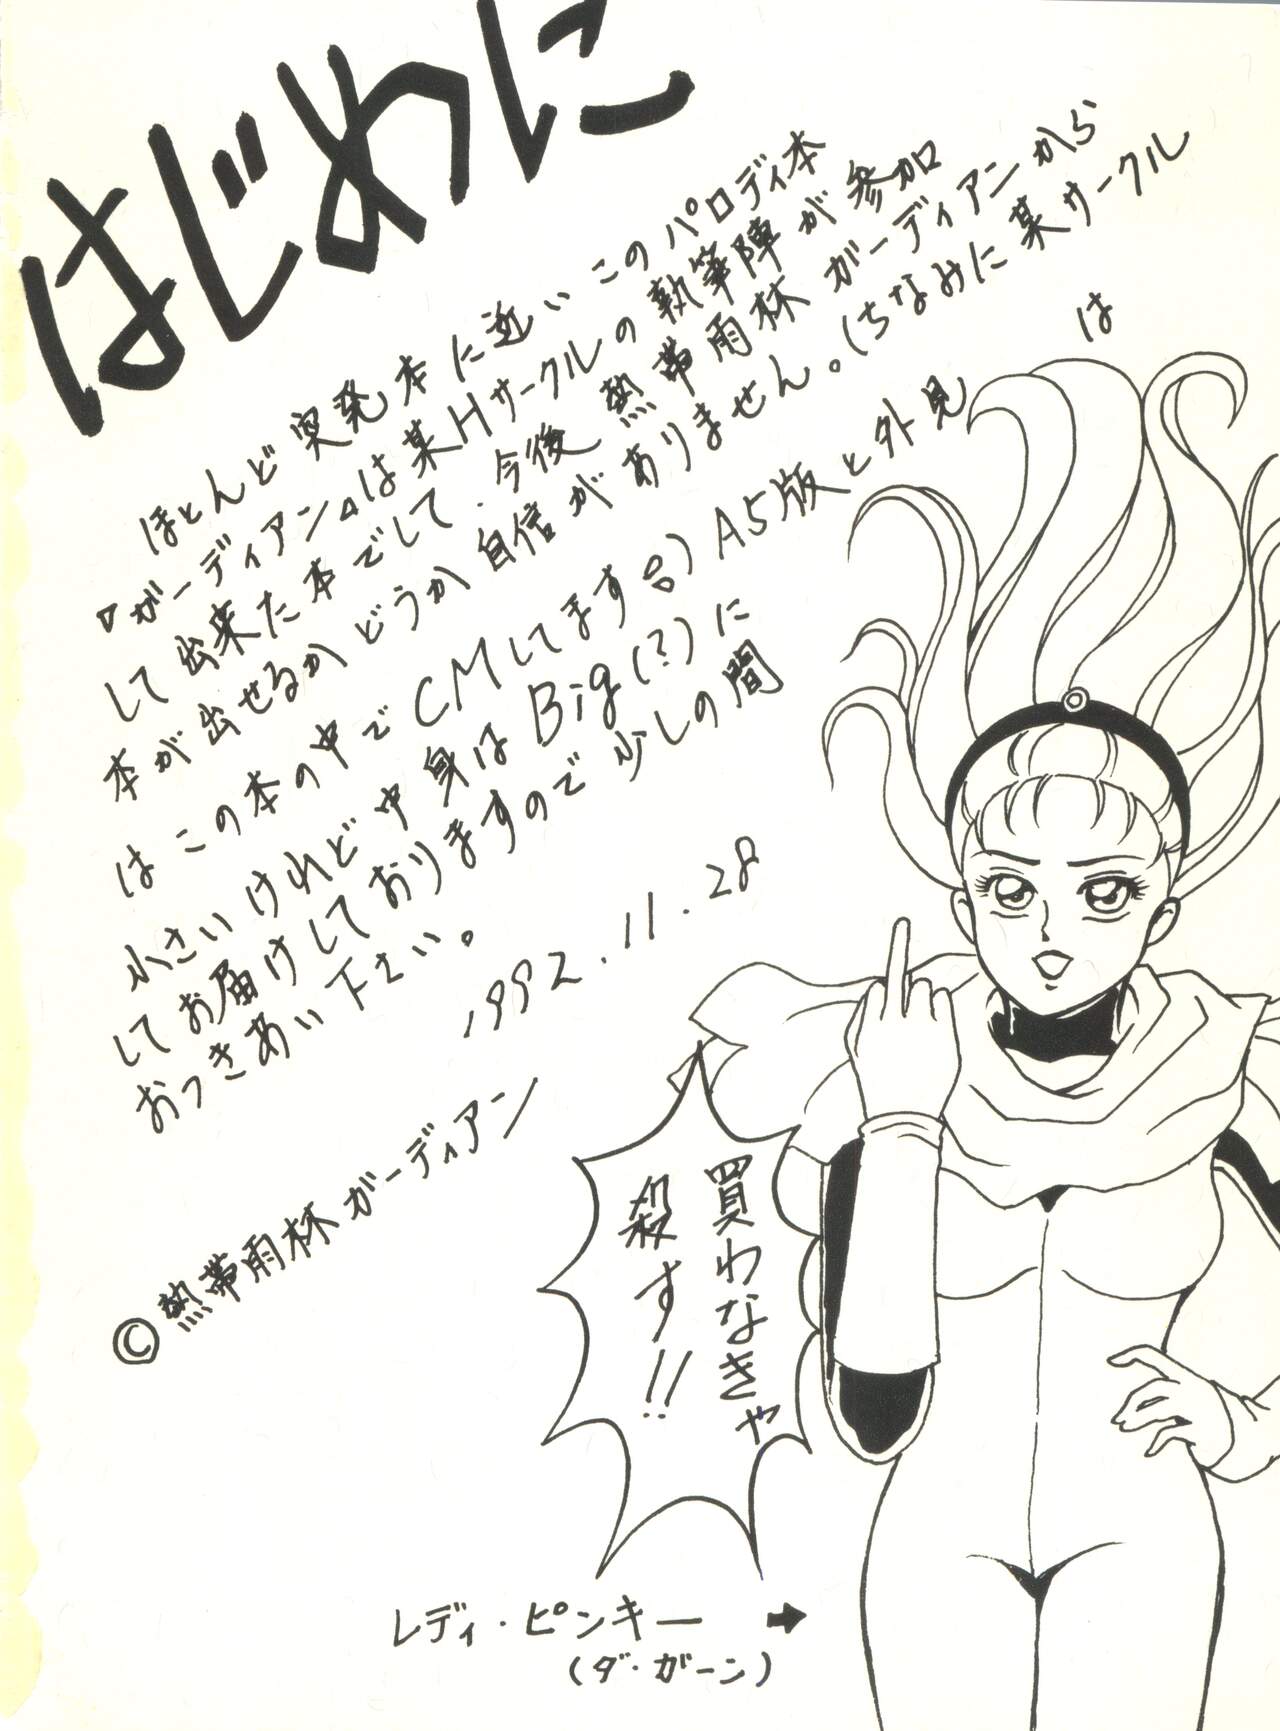 はじめに
ほとんど突発本に近いこのパロディ本
『ガーディアン』は某Hサークルの執筆陣が参加
して出来た本でして、今後熱帯雨林ガーディアンから
本が出せるかどうか自信がありません。(ちなみに某サークル
は
はこの本の中でCMしてます
A5版と外見
小さいけれど中身はBig(?)に
してお届けしておりますので少しの間
おつきあい下さい。
1992.11.28
©熱帯雨林ガーディアン
買わなきゃ
殺す!!
レディ・ピンキー
(ダ・ガーン)